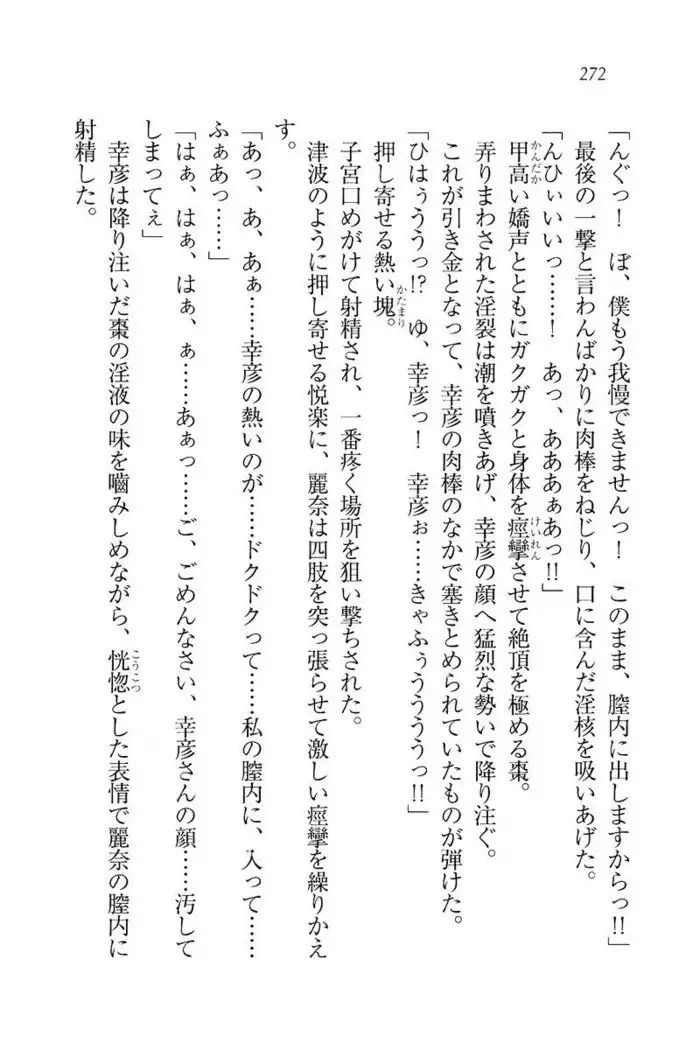 272
「んぐっ！　ぼ、僕もう我慢できませんっ！　このまま、膣内に出しますからっ!!」
最後の一撃と言わんばかりに肉棒をねじり、口に含んだ淫核を吸いあげた。
「んひぃいいっ……！　あっ、あああぁあっ!!」
甲高い嬌声とともにガクガクと身体を痙攣させて絶頂を極める棗。
弄りまわされた淫裂は潮を噴きあげ、幸彦の顔へ猛烈な勢いで降り注ぐ。
これが引き金となって、幸彦の肉棒のなかで塞きとめられていたものが弾けた。
「ひはぅううっ!?　ゆ、幸彦っ！　幸彦ぉ……きゃふぅうううっ!!」
押し寄せる熱い塊。
子宮口めがけて射精され、一番疼く場所を狙い撃ちされた。
津波のように押し寄せる悦楽に、麗奈は四肢を突っ張らせて激しい痙攣を繰りかえ
す。
「あっ、あ、あぁ……幸彦の熱いのが……ドクドクって……私の膣内に、入って……
ふぁあっ……」
「はぁ、はぁ、はぁ、ぁ……あぁっ……ご、ごめんなさい、幸彦さんの顔……汚して
しまってぇ」
幸彦は降り注いだ棗の淫液の味を噛みしめながら、恍惚とした表情で麗奈の膣内に
射精した。